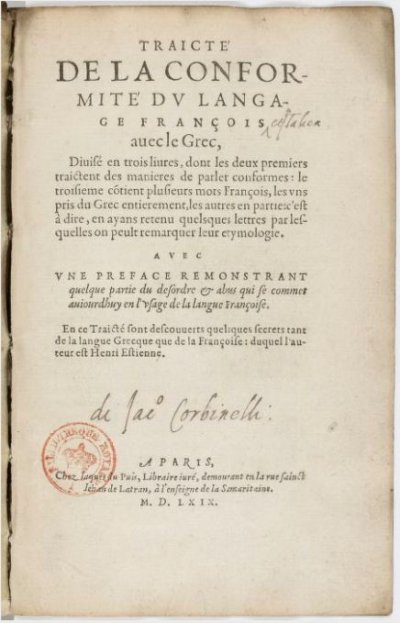 TRAICTÉ
DE LA CONFOR-
MITÉ DV LANGA-
GE FRANÇOIS
auec le Grec,
Diuisé en trois liures, dont les deux premiers
traictent des manieres de parler conformes: le
troisieme cōtient plusieurs mots François, les vns
pris du Grec entierement, les autres en partie: c'est
à dire, en ayans retenu quelques lettres par les-
quelles on peult remarquer leur etymologie.
AVEC
VNE PREFACE REMONSTRANT
quelque partie du desordre & abus qui se commet
auiourdhuy en l'vsage de la langue Françoise.
En ce Traicté sont descouuerts quelques secrets tant
de la langue Grecque que de la Françoise: duquel l'au-
teur est Henri Estienne.
de Jac° Corbinelli:
A PARIS,
Chez Iaques du Puis, Libraire iuré, demourant en la rue sainct
Iehan de Latran, à l'enseigne de la Samaritaine.
M. D. LXIX.